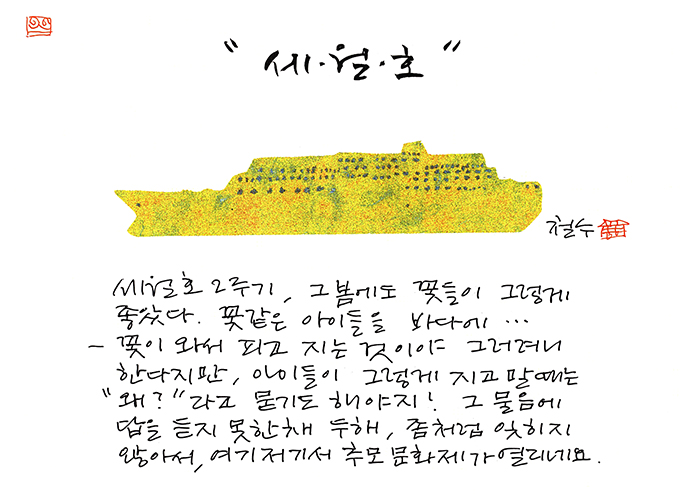 "세·월·호"
철수
세월호 2주기, 그봄에도 꽃들이 그렇게
좋았다. 꽃같은 아이들을 바다에 …
- 꽃이 와서 피고 지는 것이야 그러려니
한다지만, 아이들이 그렇게 지고 말때는
"왜?"라고 묻기도 해야지! 그 물음에
답을 듣지 못한채 두해, 좀처럼 잊히지
않아서, 여기저기서 추모문화제가 열리네요.